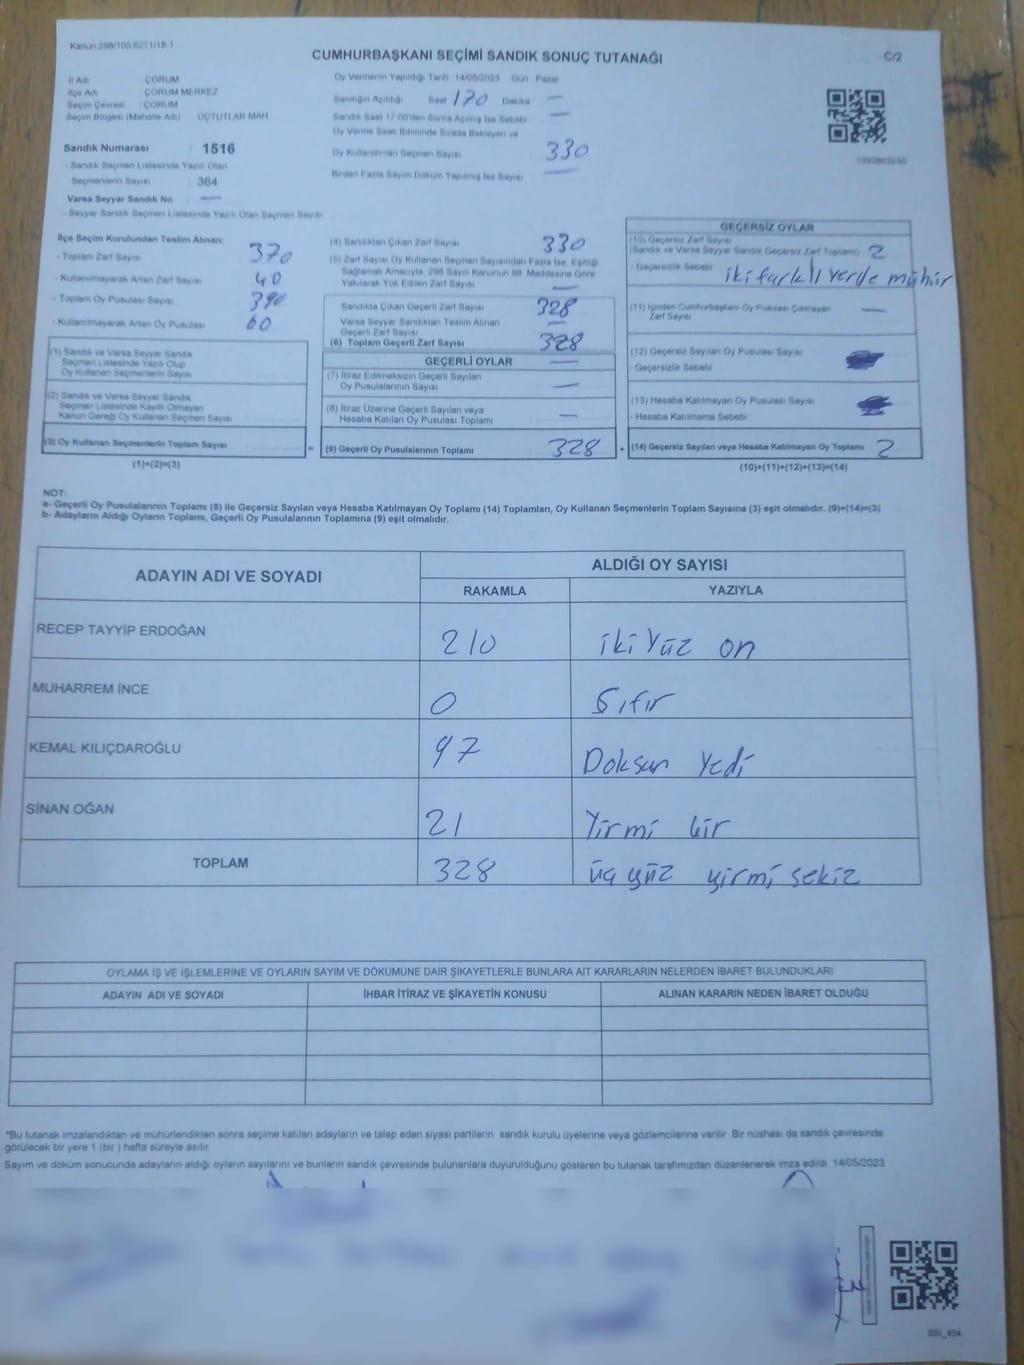 Kanun:298/105 6271/18-1
CUMHURBAŞKANI SEÇİMİ SANDIK SONUÇ TUTANAĞI
C/2
İl Adı ÇORUM
İlçe Adı ÇORUM MERKEZ
Seçim Çevresi : ÇORUM
Seçim Bölgesi (Mahalle Adı) ÜÇTUTLAR MAH
Sandık Numarası : 1516
- Sandık Seçmen Listesinde Yazılı Olan
Seçmenlerin Sayısı : 364
Varsa Seyyar Sandık No —
- Seyyar Sandık Seçmen Listesinde Yazılı Olan Seçmen Sayısı
Oy Vermenin Yapıldığı Tarih 14/05/2023 Gün Pazar
Sandığın Açıldığı Saat 170 Dakika —
Sandık Saat 17.00'den Sonra Açılmış İse Sebebi —
Oy Verme Saati Bitiminde Sırada Bekleyen ve
Oy Kullandırılan Seçmen Sayısı 330
Birden Fazla Sayım Döküm Yapılmış İse Sayısı —
İlçe Seçim Kurulundan Teslim Alınan;
- Toplam Zarf Sayısı 370
- Kullanılmayarak Artan Zarf Sayısı 40
- Toplam Oy Pusulası Sayısı 390
- Kullanılmayarak Artan Oy Pusulası 60
(1) Sandık ve Varsa Seyyar Sandık
Seçmen Listesinde Yazılı Olup
Oy Kullanan Seçmenlerin Sayısı
(2) Sandık ve Varsa Seyyar Sandık
Seçmen Listesinde Kayıtlı Olmayan
Kanun Gereği Oy Kullanan Seçmen Sayısı
(3) Oy Kullanan Seçmenlerin Toplam Sayısı =
(1)+(2)=(3)
(4) Sandıktan Çıkan Zarf Sayısı 330
(5) Zarf Sayısı Oy Kullanan Seçmen Sayısından Fazla İse, Eşitliği
Sağlamak Amacıyla, 298 Sayılı Kanunun 98. Maddesine Göre
Yakılarak Yok Edilen Zarf Sayısı —
Sandıkta Çıkan Geçerli Zarf Sayısı 328
Varsa Seyyar Sandıktan Teslim Alınan —
Geçerli Zarf Sayısı
(6) Toplam Geçerli Zarf Sayısı 328
GEÇERLİ OYLAR —
(7) İtiraz Edilmeksizin Geçerli Sayılan
Oy Pusulalarının Sayısı —
(8) İtiraz Üzerine Geçerli Sayılan veya
Hesaba Katılan Oy Pusulası Toplamı —
(9) Geçerli Oy Pusulalarının Toplamı 328 +
GEÇERSİZ OYLAR
(10) Geçersiz Zarf Sayısı
(Sandık ve Varsa Seyyar Sandık Geçersiz Zarf Toplamı) 2
- Geçersizlik Sebebi iki farklı yerde mühür
(11) İçinden Cumhurbaşkanı Oy Pusulası Çıkmayan
Zarf Sayısı —
(12) Geçersiz Sayılan Oy Pusulası Sayısı
- Geçersizlik Sebebi
(13) Hesaba Katılmayan Oy Pusulası Sayısı
- Hesaba Katılmama Sebebi
(14) Geçersiz Sayılan veya Hesaba Katılmayan Oy Toplamı 2
(10)+(11)+(12)+(13)=(14)
NOT:
a- Geçerli Oy Pusulalarının Toplamı (9) ile Geçersiz Sayılan veya Hesaba Katılmayan Oy Toplamı (14) Toplamları, Oy Kullanan Seçmenlerin Toplam Sayısına (3) eşit olmalıdır. (9)+(14)=(3)
b- Adayların Aldığı Oyların Toplamı, Geçerli Oy Pusulalarının Toplamına (9) eşit olmalıdır.
ADAYIN ADI VE SOYADI
ALDIĞI OY SAYISI
RAKAMLA YAZIYLA
RECEP TAYYİP ERDOĞAN 210 iki yüz on
MUHARREM İNCE 0 Sıfır
KEMAL KILIÇDAROĞLU 97 Doksan Yedi
SİNAN OĞAN 21 Yirmi bir
TOPLAM 328 üç yüz yirmi sekiz
OYLAMA İŞ VE İŞLEMLERİNE VE OYLARIN SAYIM VE DÖKÜMÜNE DAİR ŞİKAYETLERLE BUNLARA AİT KARARLARIN NELERDEN İBARET BULUNDUKLARI
ADAYIN ADI VE SOYADI İHBAR İTİRAZ VE ŞİKAYETİN KONUSU ALINAN KARARIN NEDEN İBARET OLDUĞU
*Bu tutanak imzalandıktan ve mühürlendikten sonra seçime katılan adayların ve talep eden siyasi partilerin sandık kurulu üyelerine veya gözlemcilerine verilir. Bir nüshası da sandık çevresinde
görülecek bir yere 1 (bir ) hafta süreyle asılır.
Sayım ve döküm sonucunda adayların aldığı oyların sayılarını ve bunların sandık çevresinde bulunanlara duyurulduğunu gösteren bu tutanak tarafımızdan düzenlenerek imza edildi. 14/05/2023